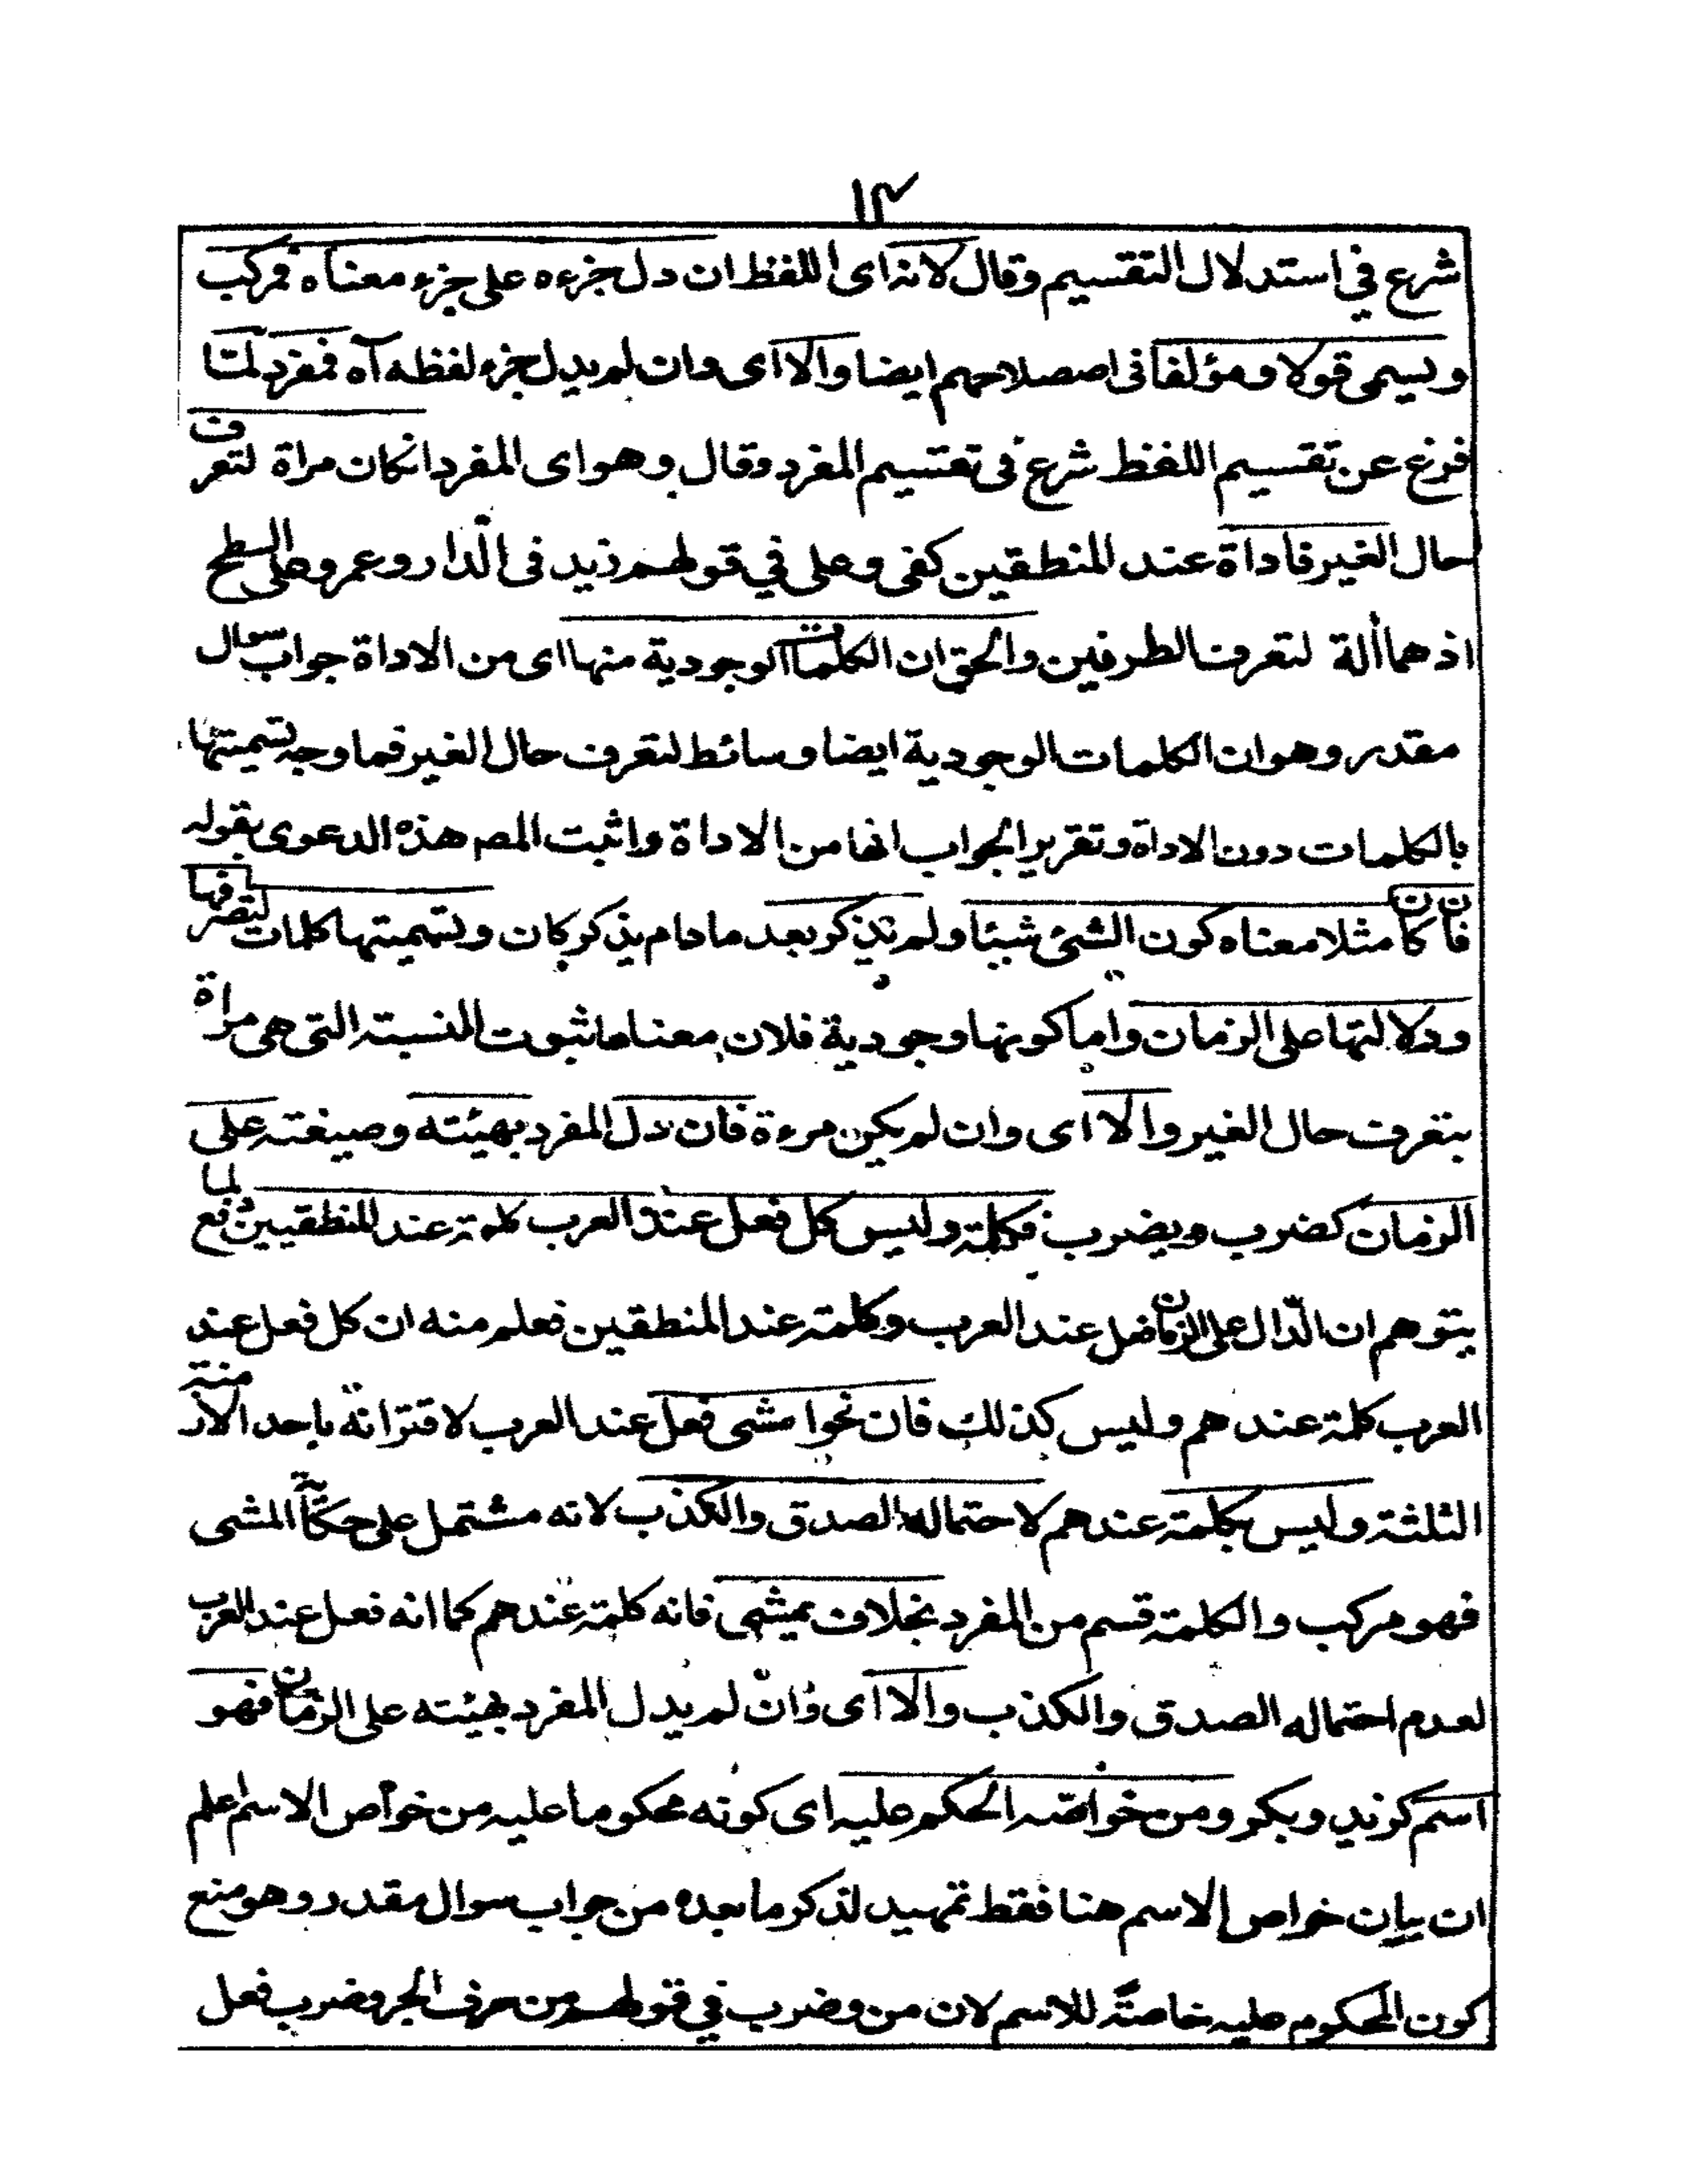 ١٤
شرع في استدلال التقسيم وقال لانه اى اللفظ ان دل جزءه على جزء معناه فمركب
ويسمى قولا ومؤلفا فى اصصلاحهم ايضا والا اى وان لم يدل جزء لفظه آه فمفرد لمّا
فرغ عن تقسيم اللفظ شرع فى تقسيم المفرد وقال وهو اى المفرد انكان مراة لتعرف
حال الغير فاداة عند المنطقين كفى وعلى في قولهم زيد فى الدار وعمرو على السطح
اذ هما ألة لتعرف الطرفين والحق ان الكلمات الوجودية منها اى من الاداة جواب سوال
مقدر وهو ان الكلمات الوجودية ايضا وسائط لتعرف حال الغير فما وجه تسميتها
بالكلمات دون الاداة وتقرير الجواب انها من الاداة واثبت المصم هذه الدعوى بقوله
فان كان مثلا معناه كون الشئ شيئا ولم يذكر بعد مادام يذكر كان وتسميتها كلمات لتصرفها
ودلالتها على الزمان واما كونها وجودية فلان معناها ثبوت النسبة التى هى مراة
بتعرف حال الغير والا اى وان لم يكن مرءة فان دل المفرد بهيئته وصيغته على
الزمان كضرب ويضرب فكلمة وليس كل فعل عند العرب كلمة عند المنطقيين دفع لما
يتوهم ان الدّال على الزمان فعل عند العرب وكلمة عند المنطقين فعلم منه ان كل فعل عند
العرب كلمة عندهم وليس كذلك فان نحوا مشى فعل عند العرب لاقترانه باحد الازمنة
الثلثة وليس بكلمة عندهم لاحتماله الصدق والكذب لانه مشتمل على حكاية المشى
فهو مركب والكلمة قسم من المفرد بخلاف يمشى فانه كلمة عندهم كما انه فعل عند العرب
لعدم احتماله الصدق والكذب والا اى وان لم يدل المفرد بهيئته على الزمان فهو
اسم كزيد وبكر ومن خواصه الحكم عليه اى كونه محكوما عليه من خواص الاسم اعلم
ان بيان خواص الاسم هنا فقط تمهيد لذكر ما بعده من جواب سوال مقدر وهو منع
كون المحكوم عليه خاصة للاسم لان من وضرب في قولهم من حرف الجر وضرب فعل